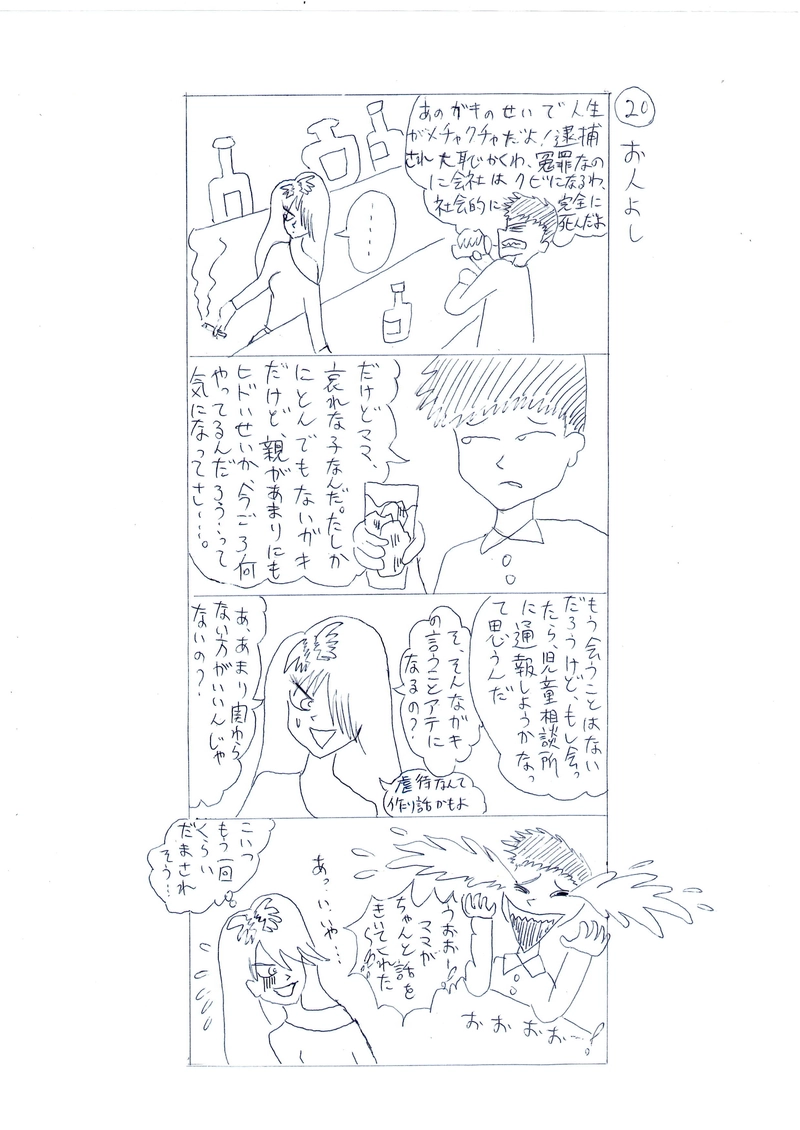 20
お人よし
あのガキのせいで人生
がメチャクチャだよ!逮捕
され大恥かくわ、冤罪なの
に会社はクビになるわ、
社会的に完全に
死んだよ
------
だけどママ、
哀れな子なんだ。たしか
にとんでもないガキ
だけど、親があまりにも
ヒドいせいか、今ごろ何
やってるんだろう…って
気になってさ…。
もう会うことはない
だろうけど、もし会っ
たら、児童相談所
に通報しようかなっ
て思うんだ
そ、そんなガキ
の言うことアテに
なるの?
虐待なんて
作り話かもよ
あ、あまり関わら
ない方がいいんじゃ
ないの?
うおおー!
ママが
ちゃんと話を
きいてくれた
おおおおー!
あっ…いや…
こいつ
もう一回
くらい
だまされ
そう…